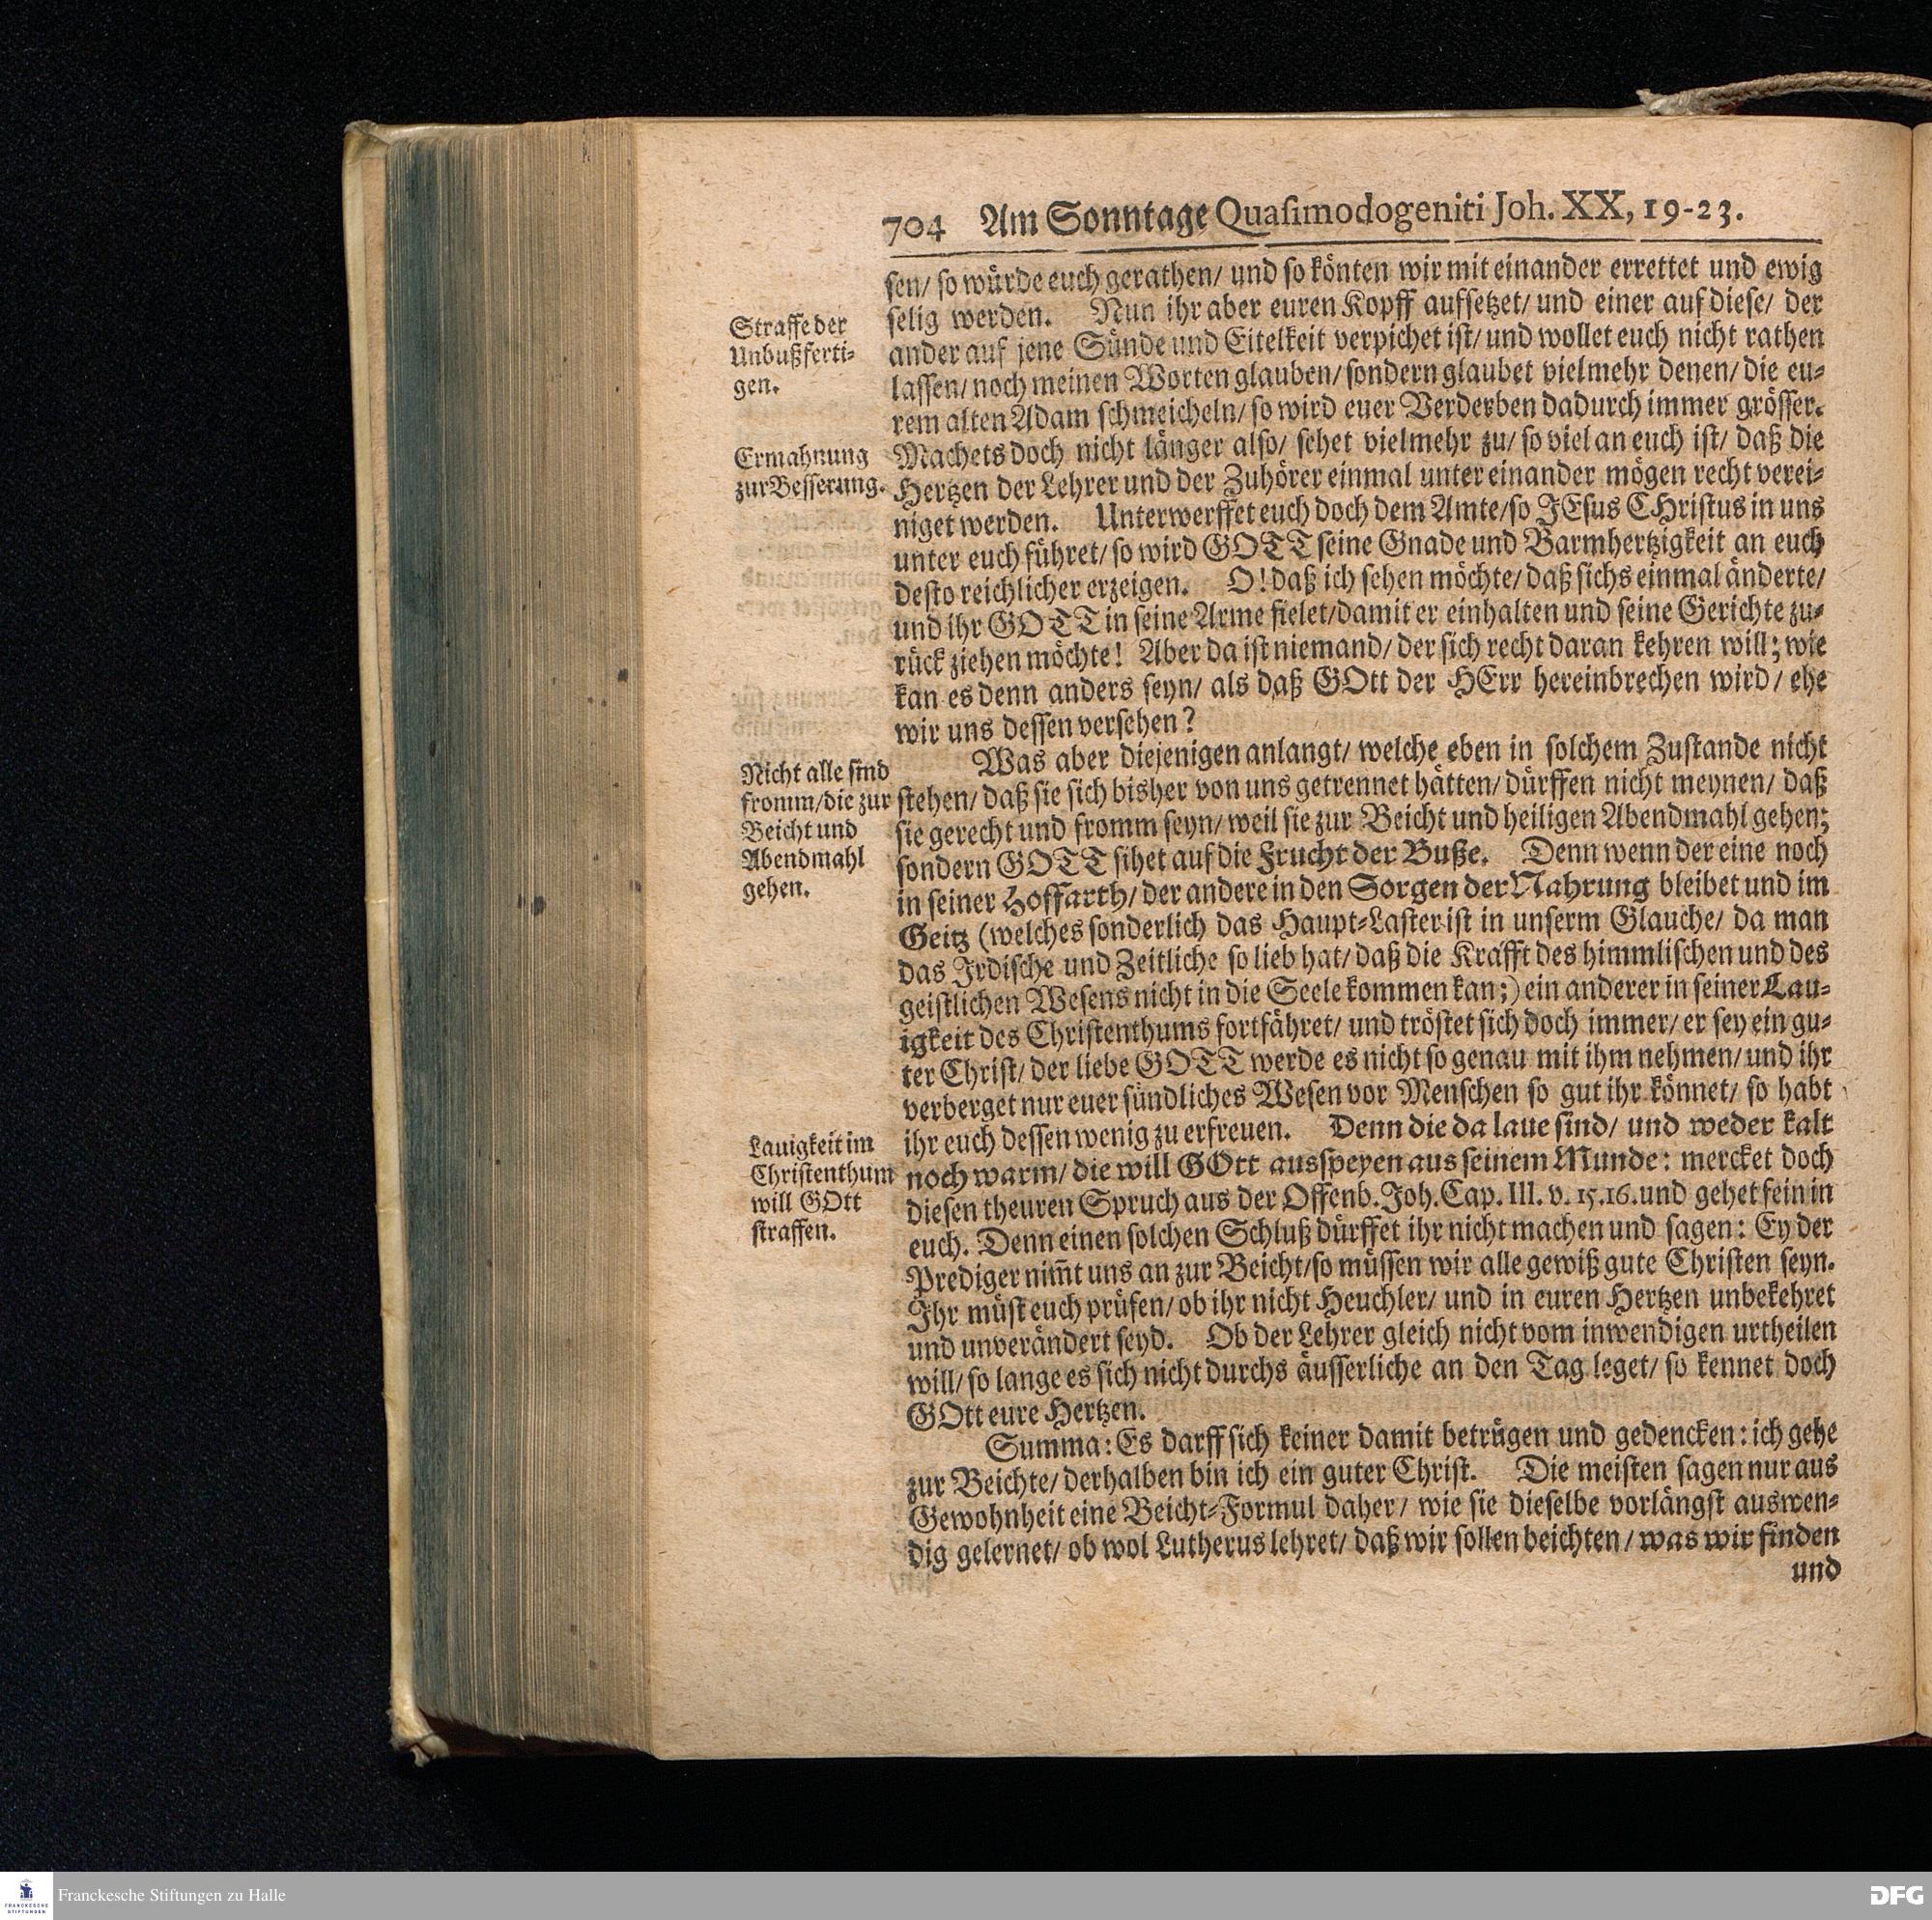 704 Am Sonntage Quasimodogeniti Joh. XX, 19-23.
sen/ so würde euch gerathen/ und so könten wir mit einander errettet und ewig
selig werden. Nun ihr aber euren Kopff aufsetzet/ und einer auf diese/ der
ander auf jene Sünde und Eitelkeit verpichet ist/ und wollet euch nicht rathen
lassen/ noch meinen Worten glauben/ sondern glaubet vielmehr denen/ die eu-
rem alten Adam schmeicheln/ so wird euer Verderben dadurch immer grösser.
Machets doch nicht länger also/ sehet vielmehr zu/ so viel an euch ist/ daß die
Hertzen der Lehrer und der Zuhörer einmal unter einander mögen recht verei-
niget werden. Unterwerffet euch doch dem Amte/ so JEsus CHristus in uns
unter euch führet/ so wird GOTT seine Gnade und Barmhertzigkeit an euch
desto reichlicher erzeigen. O! daß ich sehen möchte/ daß sichs einmal änderte/
und ihr GOTT in seine Arme fielet/ damit er einhalten und seine Gerichte zu-
rück ziehen möchte! Aber da ist niemand/ der sich recht daran kehren will; wie
kan es denn anders seyn/ als daß GOtt der HErr hereinbrechen wird/ ehe
wir uns dessen versehen?
Was aber diejenigen anlangt/ welche eben in solchem Zustande nicht
stehen/ daß sie sich bisher von uns getrennet hätten/ dürffen nicht meynen/ daß
sie gerecht und fromm seyn/ weil sie zur Beicht und heiligen Abendmahl gehen;
sondern GOTT sihet auf die Frucht der Buße. Denn wenn der eine noch
in seiner Hoffarth/ der andere in den Sorgen der Nahrung bleibet und im
Geitz (welches sonderlich das Haupt-Laster ist in unserm Glauche/ da man
das Irdische und Zeitliche so lieb hat/ daß die Krafft des himmlischen und des
geistlichen Wesens nicht in die Seele kommen kan;) ein anderer in seiner Lau-
igkeit des Christenthums fortfähret/ und tröstet sich doch immer/ er sey ein gu-
ter Christ/ der liebe GOTT werde es nicht so genau mit ihm nehmen/ und ihr
verberget nur euer sündliches Wesen vor Menschen so gut ihr könnet/ so habt
ihr euch dessen wenig zu erfreuen. Denn die da laue sind/ und weder kalt
noch warm/ die will GOtt ausspeyen aus seinem Munde: mercket doch
diesen theuren Spruch aus der Offenb. Joh. Cap. III. v. 15. 16. und gehet fein in
euch. Denn einen solchen Schluß dürffet ihr nicht machen und sagen: Ey der
Prediger nim̃t uns an zur Beicht/ so müssen wir alle gewiß gute Christen seyn.
Ihr müst euch prüfen/ ob ihr nicht Heuchler/ und in euren Hertzen unbekehret
und unverändert seyd. Ob der Lehrer gleich nicht vom inwendigen urtheilen
will/ so lange es sich nicht durchs äusserliche an den Tag leget/ so kennet doch
GOtt eure Hertzen.
Summa: Es darff sich keiner damit betrügen und gedencken: ich gehe
zur Beichte/ derhalben bin ich ein guter Christ. Die meisten sagen nur aus
Gewohnheit eine Beicht-Formul daher/ wie sie dieselbe vorlängst auswen-
dig gelernet/ ob wol Lutherus lehret/ daß wir sollen beichten/ was wir finden
und
Straffe der
Unbußferti-
gen.
Ermahnung
zur Besserung.
Nicht alle sind
fromm/ die zur
Beicht und
Abendmahl
gehen.
Lauigkeit im
Christenthum
will GOtt
straffen.
FRANCKESCHE
STIFTUNGEN
Franckesche Stiftungen zu Halle
DFG